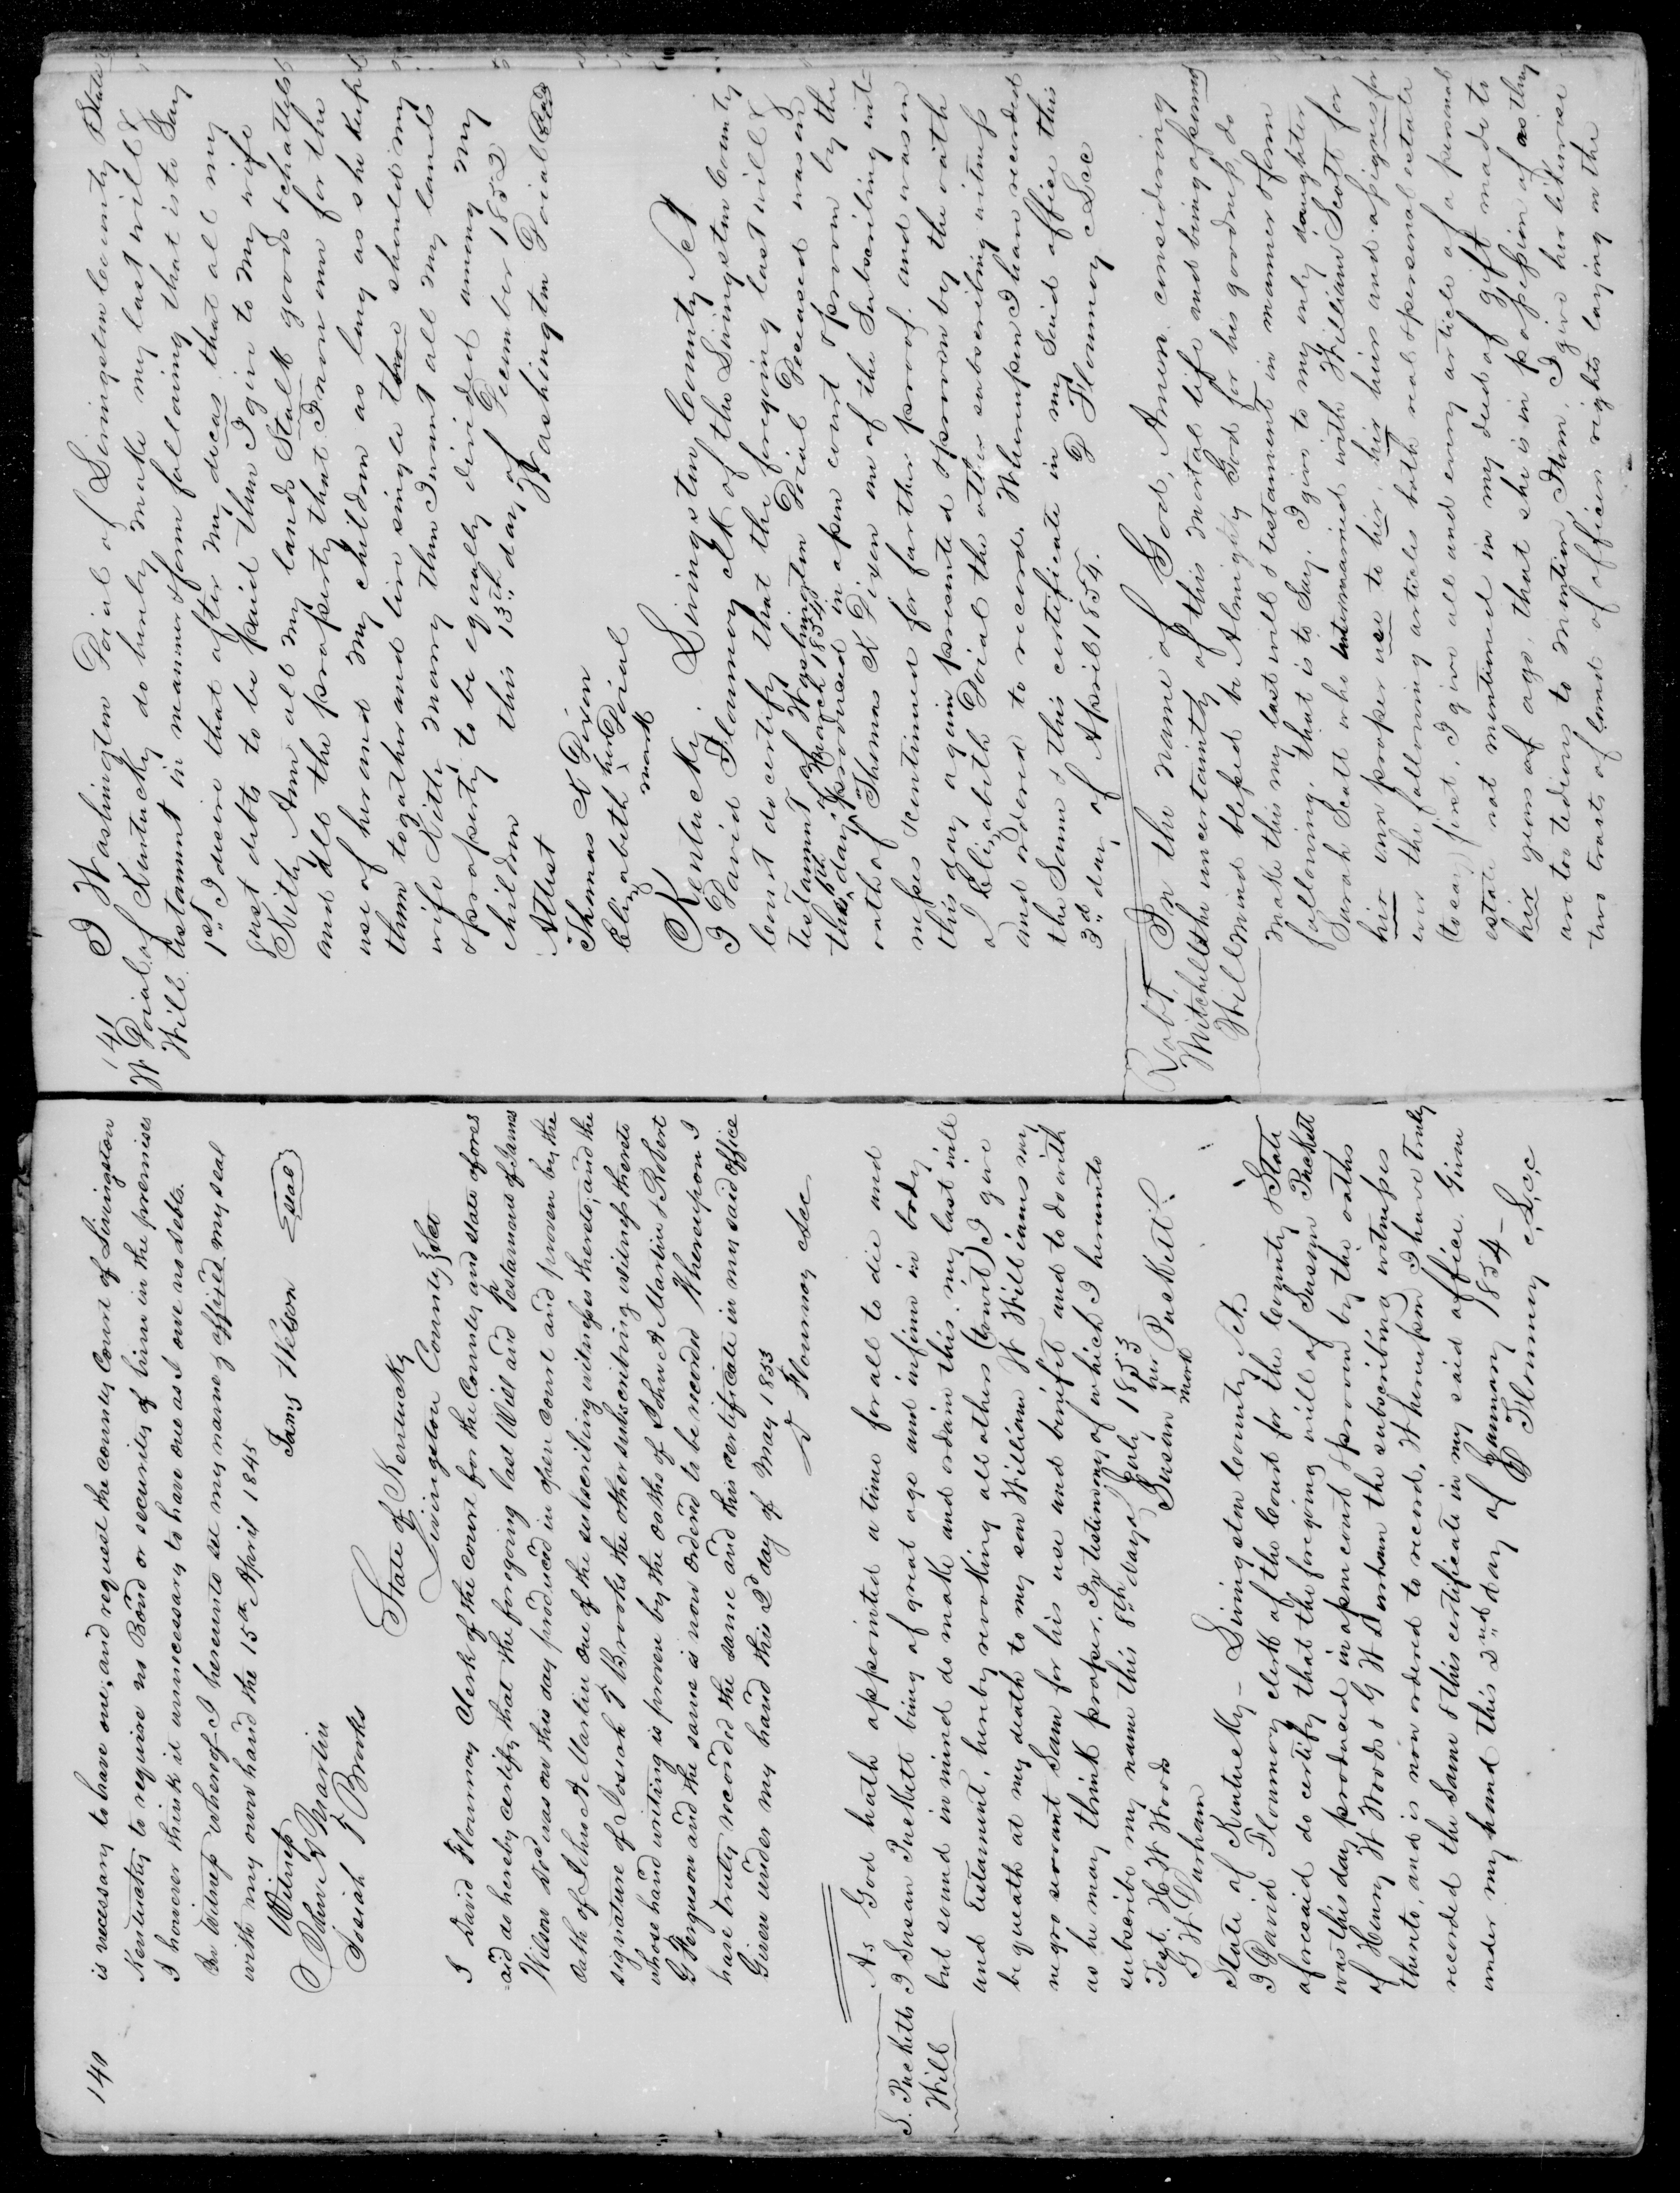 140
is necessary to have one, and request the County Court of Livingston
Kentucky to require no Bond or security of him in the premises
I however think it unnecessary to have one as I owe no debts.
In witness whereof I hereunto set my name & affixed my seal
with my own hand the 15th April 1845
James Wilson Seal
Witness
John A Martin
Josiah T Brooks
State of Kentucky
Livingston County Sct
I David Flournoy Clerk of the court for the County and state afores
aid do hereby certify that the foregoing last Will and Testament of James
Wilson decd was on this day produced in open court and proven by the
oath of John A Martin one of the subscribing witnesses thereto, and the
signature of Josiah T Brooks the other subscribing witness thereto
whose hand writing is proven by the oaths of John A Martin & Robert
G Ferguson and the same is now ordered to be recorded Whereupon I
have truly recorded the same and this certificate in my said office
Given under my hand this 2d day of May 1853
D Flournoy clcc
S. Pucketts
Will
As God hath appointed a time for all to die and
I Susan Puckett being of great age and infirm in body
but sound in mind do make and ordain this my last will
and testament, hereby revoking all others (towit) I give
bequeath at my death to my son William W Williams my
negro servant Sam for his use and benifit and to do with
as he may think proper. In testimony of which I hereunto
subscribe my name this 8th day of July 1853
Test. H W Woods
G W Durham
Susan her x mark Puckett
State of Kentucky – Livingston County Sct.
I David Flournoy clerk of the Court for the County & State
aforesaid do certify that the foregoing will of Susan Puckett
was this day produced in open court & proven by the oaths
of Henry W Woods & G W Durham the subscribing witnesses
thereto, and is now ordered to record, Whereupon I have truly
recorded the same & this certificate in my said office. Given
under my hand this 2nd day of January 1854 –
D Flournoy c.L.c.c
141
W Doials
Will
I Washington Doial of Livingston County & State
of Kentucky do hereby make my last will &
testament in manner & form following that is to say
1st I desire that after my deceas that all my
just debts to be paid then I give to my wife
Kitty Ann all my lands Stalk goods & chattels
and all the property that I now own for the
use of her and my children as long as she keeps
them together and live single thare should my
wife Kitty marry then I want all my lands
& property to be equally divided among my
children this 13th day of December 1852
Washington Doial Seal
Attest
Thomas K Diven
Elizabeth her x mark Doial
Kentucky. Livingston County Sct
I David Flournoy clk of the Livingston County
Court do certify that the foregoing last will &
Testament of Washington Doial Deceased was on
the 6th day of March 1854 produced in open court & proven by the
oath of Thomas K Diven one of the Subscribing wit=
nesses & continued for farther proof. and was on
this day again presented & proven by the oath
of Elizabeth Doial the other subscribing witness
and ordered to record. Whereupon I have recorded
the same & this certificate in my said office this
3rd day of April 1854.
D Flournoy cLcc
Robt.
Mitchells
Will
In the name of God, Amen. considering
the uncertainty of this mortal life and being of sound
mind blessed be Almighty God for his goodness, do
make this my last will & testament in manner & form
following, that is to say. I give to my only daughter
Sarah Scott who intermarried with William Scott for
her own proper use to her, her heirs and assignes for
ever the following articles both real & personal estate
(to say) first, I give all and every article of a personal
estate not mentioned in my deed of gift made to
her years of age, that she is in possession of as they
are too tedious to mention, Item, I give her likewise
two tracts of land of officers rights laying on the